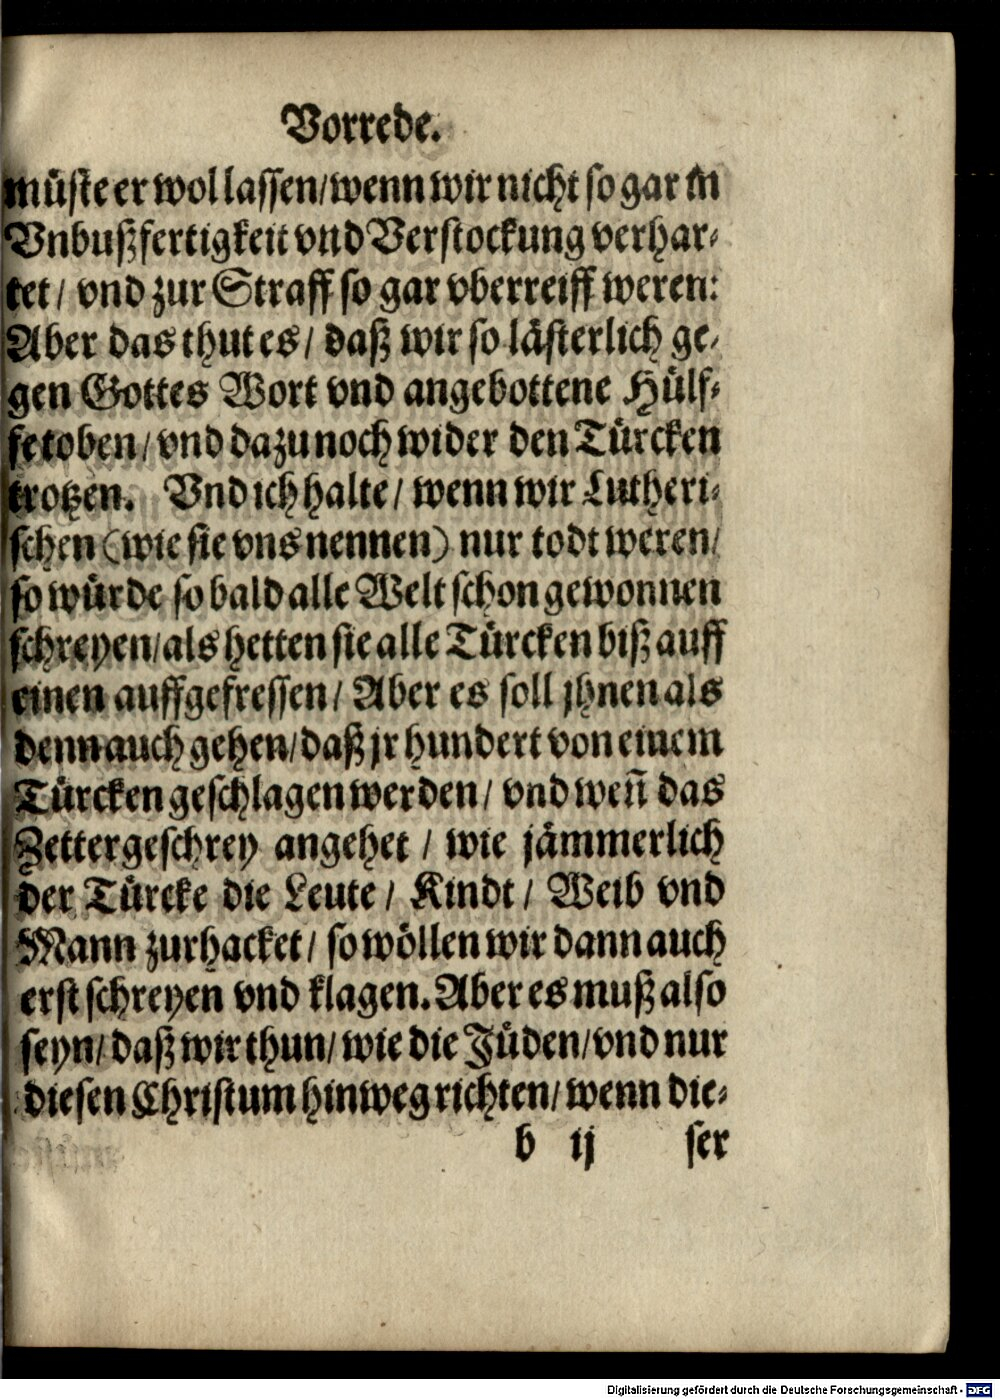 Vorrede.
müste er wol lassen/ wenn wir nicht so gar in
Vnbußfertigkeit vnd Verstockung verhar-
tet/ vnd zur Straff so gar vberreiff weren:
Aber das thut es/ daß wir so lästerlich ge-
gen Gottes Wort vnd angebottene Hülf-
fe toben/ vnd dazu noch wider den Türcken
trotzen. Vnd ich halte/ wenn wir Lutheri-
schen (wie sie vns nennen) nur todt weren/
so würde so bald alle Welt schon gewonnen
schreyen/ als hetten sie alle Türcken biß auff
einen auffgefressen/ Aber es soll jhnen als
denn auch gehen/ daß jr hundert von einem
Türcken geschlagen werden/ vnd weñ das
Zettergeschrey angehet/ wie jämmerlich
der Türcke die Leute/ Kindt/ Weib vnd
Mann zurhacket/ so wöllen wir dann auch
erst schreyen vnd klagen. Aber es muß also
seyn/ daß wir thun/ wie die Jüden/ vnd nur
diesen Christum hinweg richten/ wenn die-
b ij ser
Digitalisierung gefördert durch die Deutsche Forschungsgemeinschaft - DFG